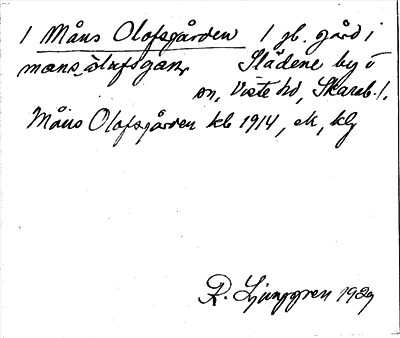 1 Måns Olofsgården 1 jb. gård i
mans ólufsgan, Slädene by o
sn, Viste hd, Skarab. l.
Måns Olofsgården kb 1914, ek, klj
R. Ljunggren 1929